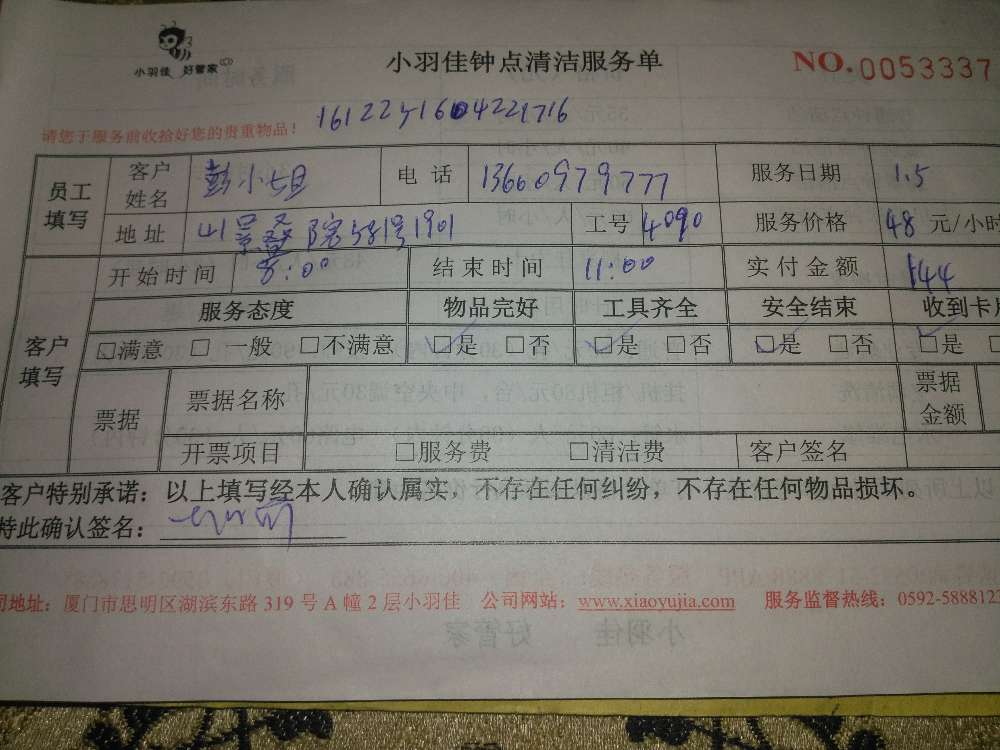 小羽佳 好管家
小羽佳钟点清洁服务单
NO.0053337
请您于服务前收拾好您的贵重物品!
员工填写 客户姓名 彭小姐 电话 13660979777 服务日期 1.5
地址 山景 院581号1901 工号 4090 服务价格 48 元/小时
开始时间 8:00 结束时间 11:00 实付金额 144
客户填写 服务态度 物品完好 工具齐全 安全结束 收到卡
□满意 □一般 □不满意 □是 □否 □是 □否 □是 □否 □是
票据 票据名称 票据金额
开票项目 □服务费 □清洁费 客户签名
客户特别承诺:以上填写经本人确认属实,不存在任何纠纷,不存在任何物品损坏。
特此确认签名:
司地址:厦门市思明区湖滨东路 319 号 A 幢 2 层小羽佳 公司网站:www.xiaoyujia.com 服务监督热线:0592-5888123